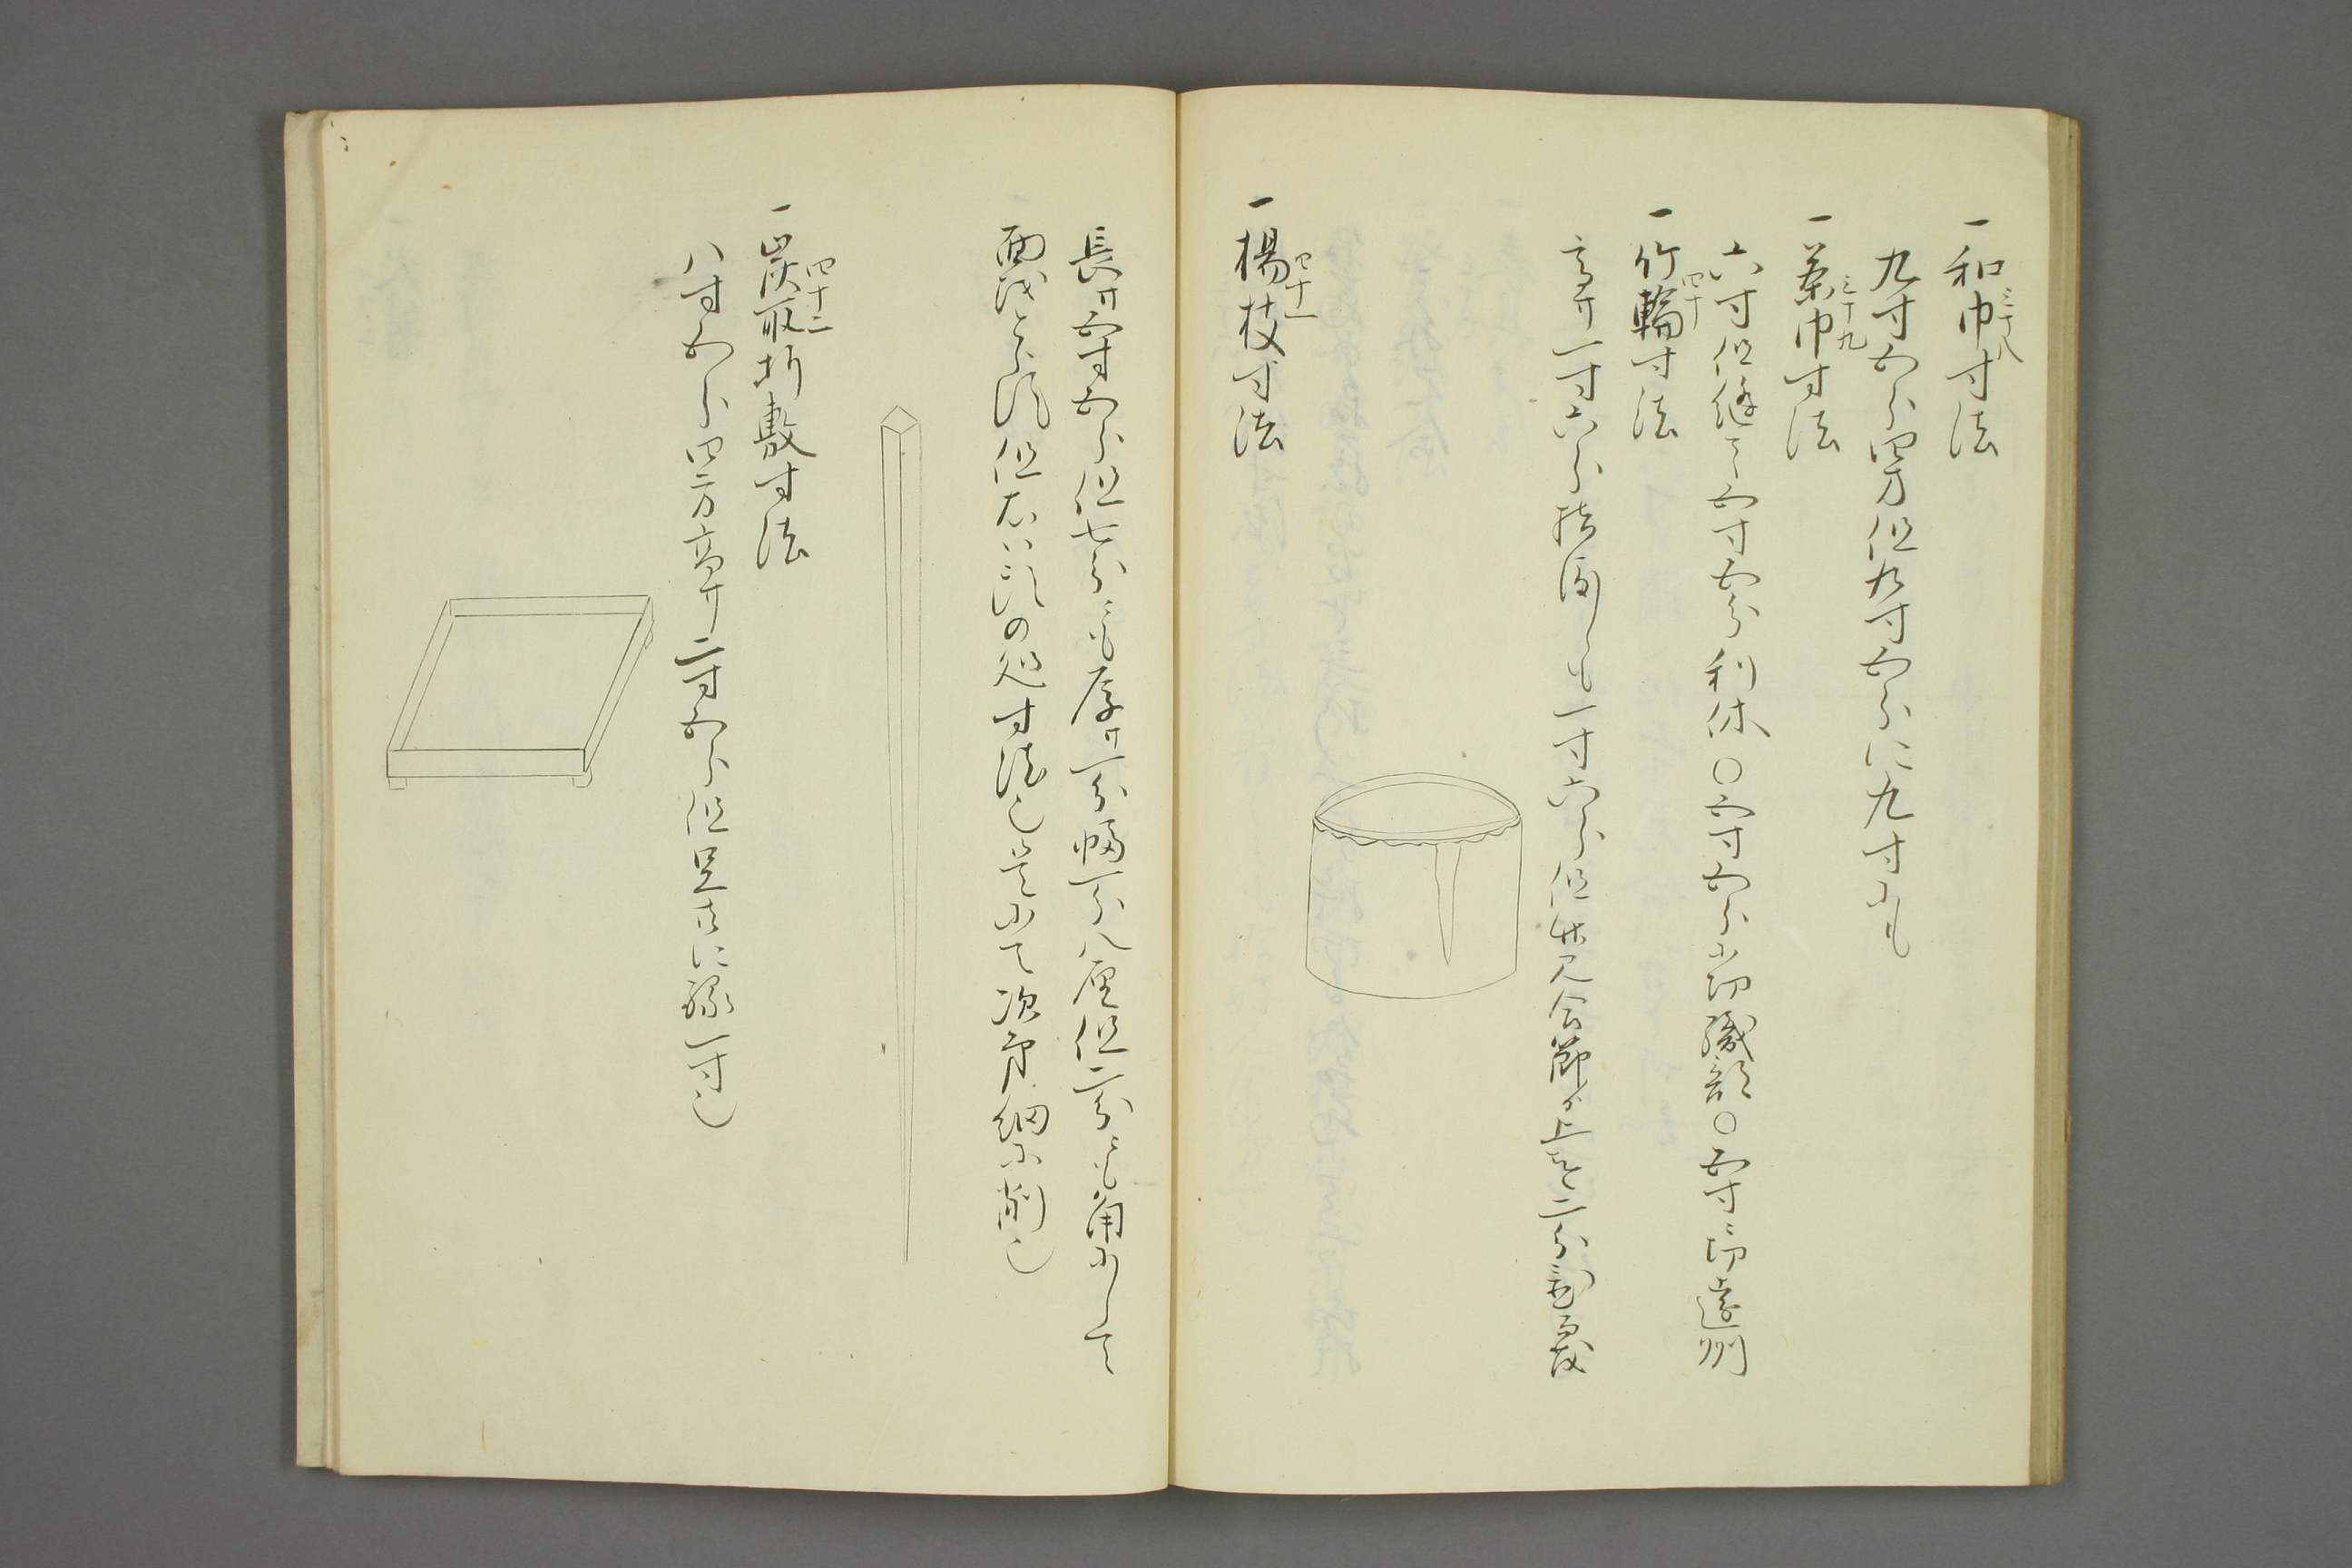 一和巾寸法
三十八
九寸五分四方但九寸五分ニ九寸ニも
一茶巾寸法
三十九
六寸但縫テ五寸五分利休〇五寸五分ニ切織部〇五寸ニ切遠州
一竹輪寸法
四十
高サ一寸六分指渡しも一寸六分但竹見合節より上を二分
一楊枝寸法
四十一
長サ五寸五分但七分ニも厚サ一分幅一分八厘但二分ニも角にして
面 とらす但右ハ頭の処寸法也是にて次第細に削也
一炭取折敷寸法
四十二
八寸五分四方高サ二寸五分但足共ニ縁一寸也